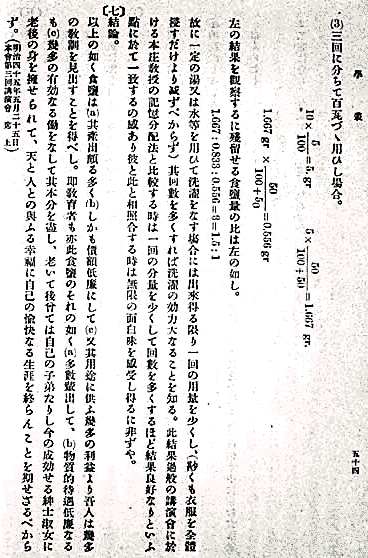 學藝
五十四
(3)三回に分ちて百瓦づヽ用ひし場合。
10 × 5/100 = 5. gr
5 × 50/100+50 = 1.667 gr.
1.667 gr × 50/100+50 = 0.556 gr
左の結果を觀察するに殘留せる食鹽量の比は左の如し。
1.667 : 0.833 : 0.556 = 3 : 1.5 : 1
故に一定の湯又は水等を用ひて洗濯をなす場合には出來得る限り一回の用量を少くし、(尠くも衣服を全體
浸すだけより減ずべからず)其回數を多くすれば洗濯の効力大なることを知る。此結果過般の講演會に於
ける本庄敎授の記憶分配法と比較する時は一回の分量を少くして回數を多くするほど結果良好なりといふ
點に於て一致するの感あり彼と此と相照合する時は無限の面白味を感受し得るに非ずや。
〔七〕
結論。
以上の如く食鹽は(a)其產出額多く(b)しかも價額低廉にして(c)又其用途に供ふ幾多の利益より吾人は幾多
の敎訓を見出すことを得べし。即敎育者も亦此食鹽のそれの如く(a)多數輩出して、(b)物質的待遇低廉なる
も(c)幾多の有効なる働をなして其本分を盡し、老いて後曾ては自己の子弟たりし今の成効せる紳士淑女に
老後の身を擁せられて、天と人との與ふる幸福に自己の愉快なる生涯を終らんことを期せざるべから
ず。(明治四十五年五月二十五日)
(本會第三回講演會席上)